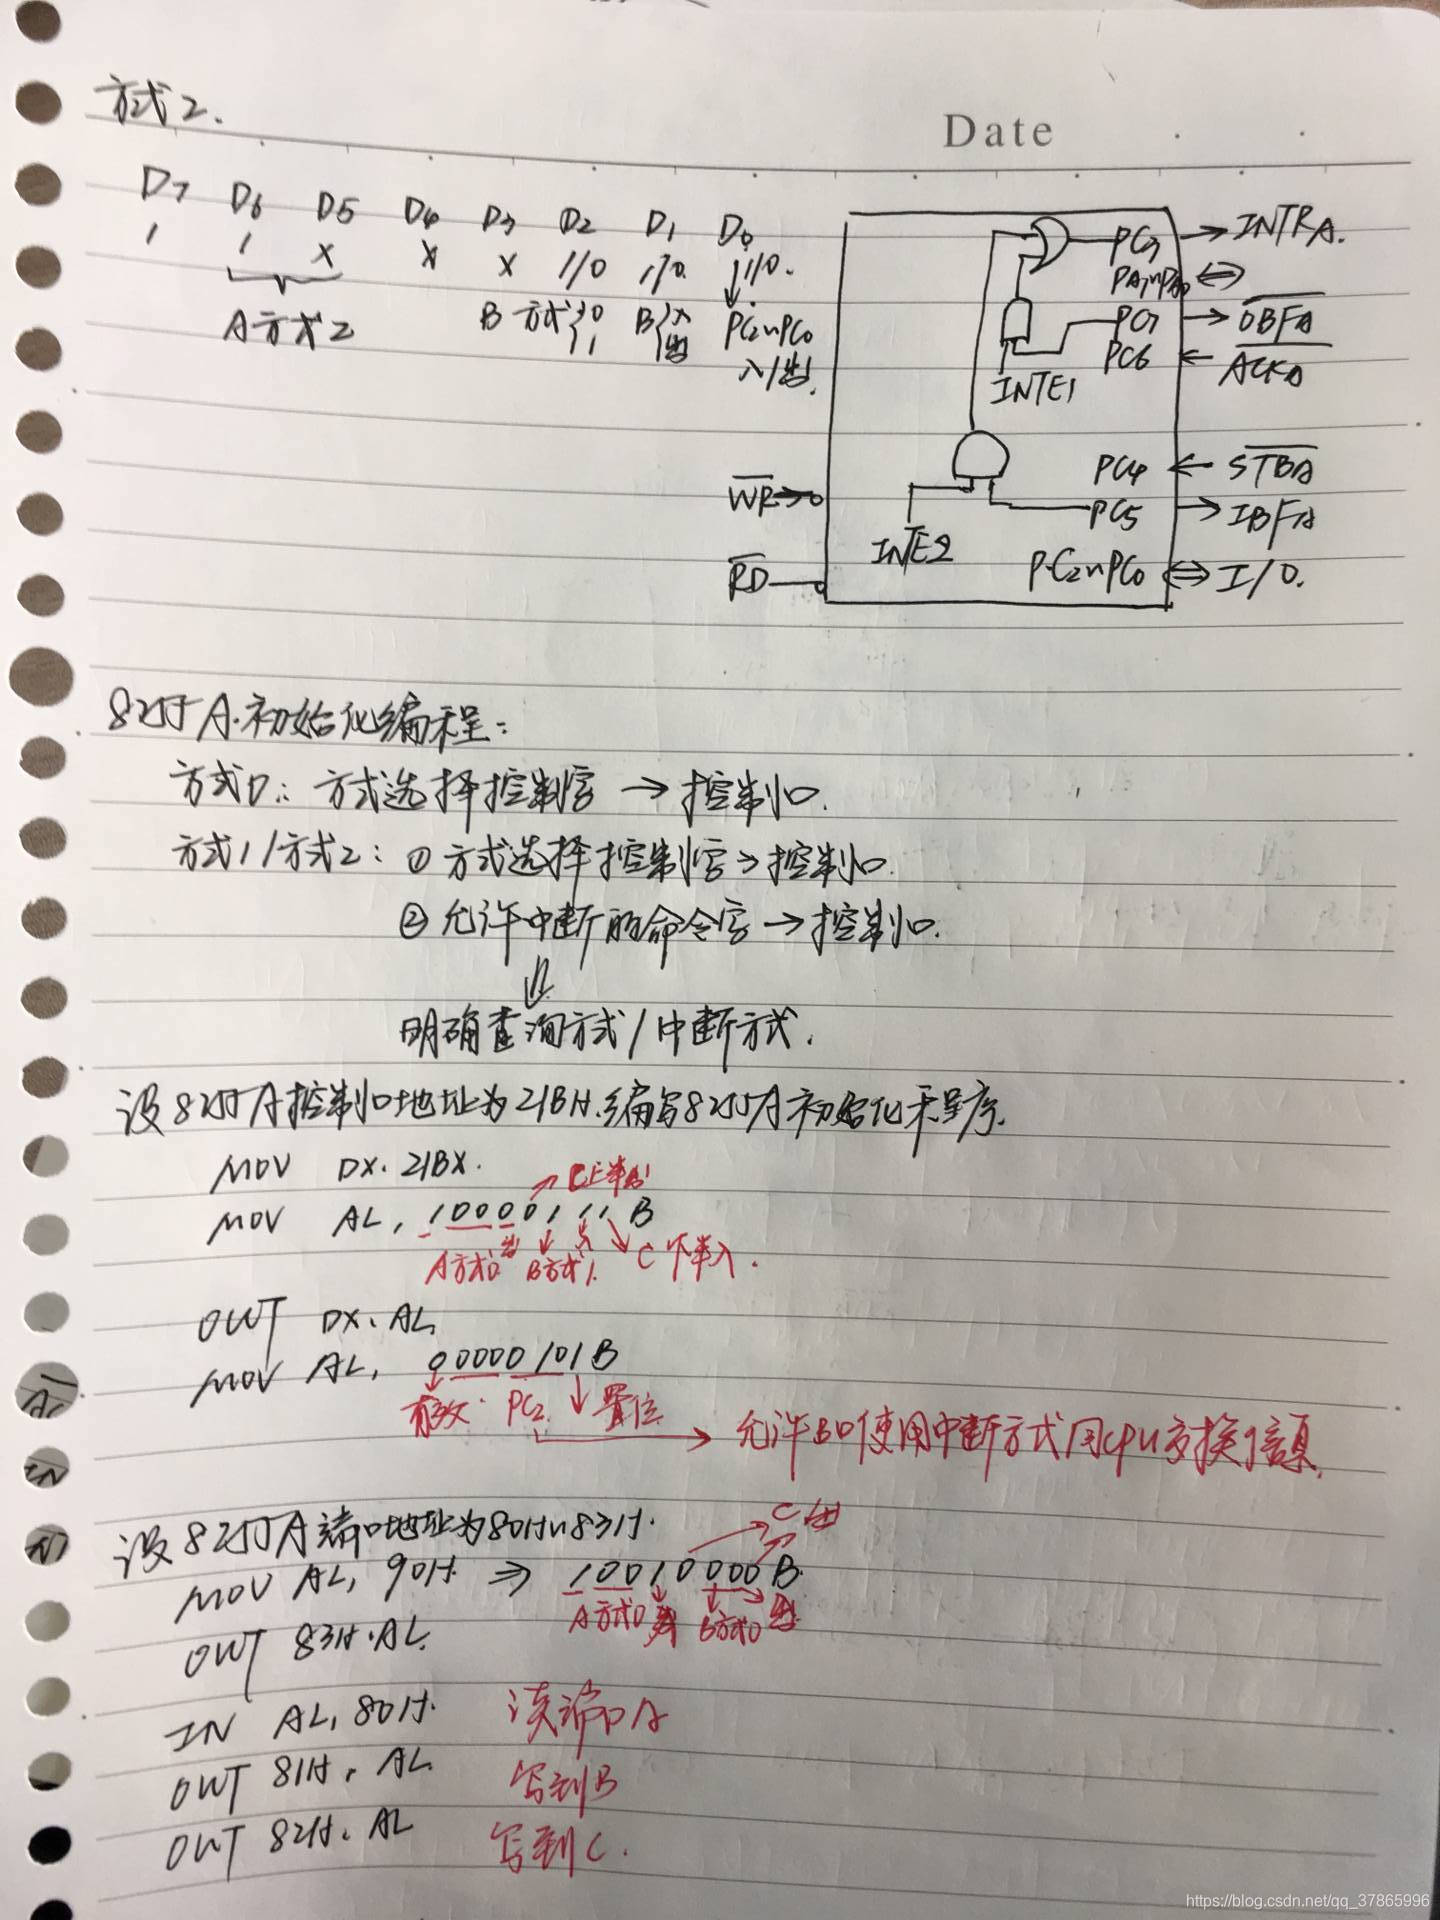 Date
方式2.
D7 D6 D5 D4 D3 D2 D1 D0
1 1 X X X 1/0 1/0 1/0.
A方式2 B方式{0 1 B{入 出 PC2~PC0
入/出.
PC3 → INTRA.
PA7~PA0
PC7 → OBFA
PC6 ← ACKA
INTE1
PC4 ← STBA
WR
PC5 → IBFA
INTE2
RD
PC2~PC0 I/O.
8255A.初始化编程:
方式0: 方式选择控制字 → 控制口.
方式1/方式2: ① 方式选择控制字→控制口.
② 允许中断的命令字→控制口.
明确查询方式/中断方式.
设8255A控制口地址为21BH.编写8255A初始化程序.
MOV DX. 21BX.
C上半出
MOV AL, 10000111 B
A方式0 出 B方式1. 入 C下半入.
OUT DX. AL
MOV AL, 00000101B
有效. PC2. 置位
→ 允许B口使用中断方式同CPU交换信息.
设8255A端口地址为80H~83H.
C出
MOV AL, 90H. ⇒ 10010000B.
A方式0 B方式0 出
OUT 83H.AL.
IN AL, 80H. 读端口A
OUT 81H, AL. 写到B
OUT 82H. AL 写到C.
https://blog.csdn.net/qq_37865996